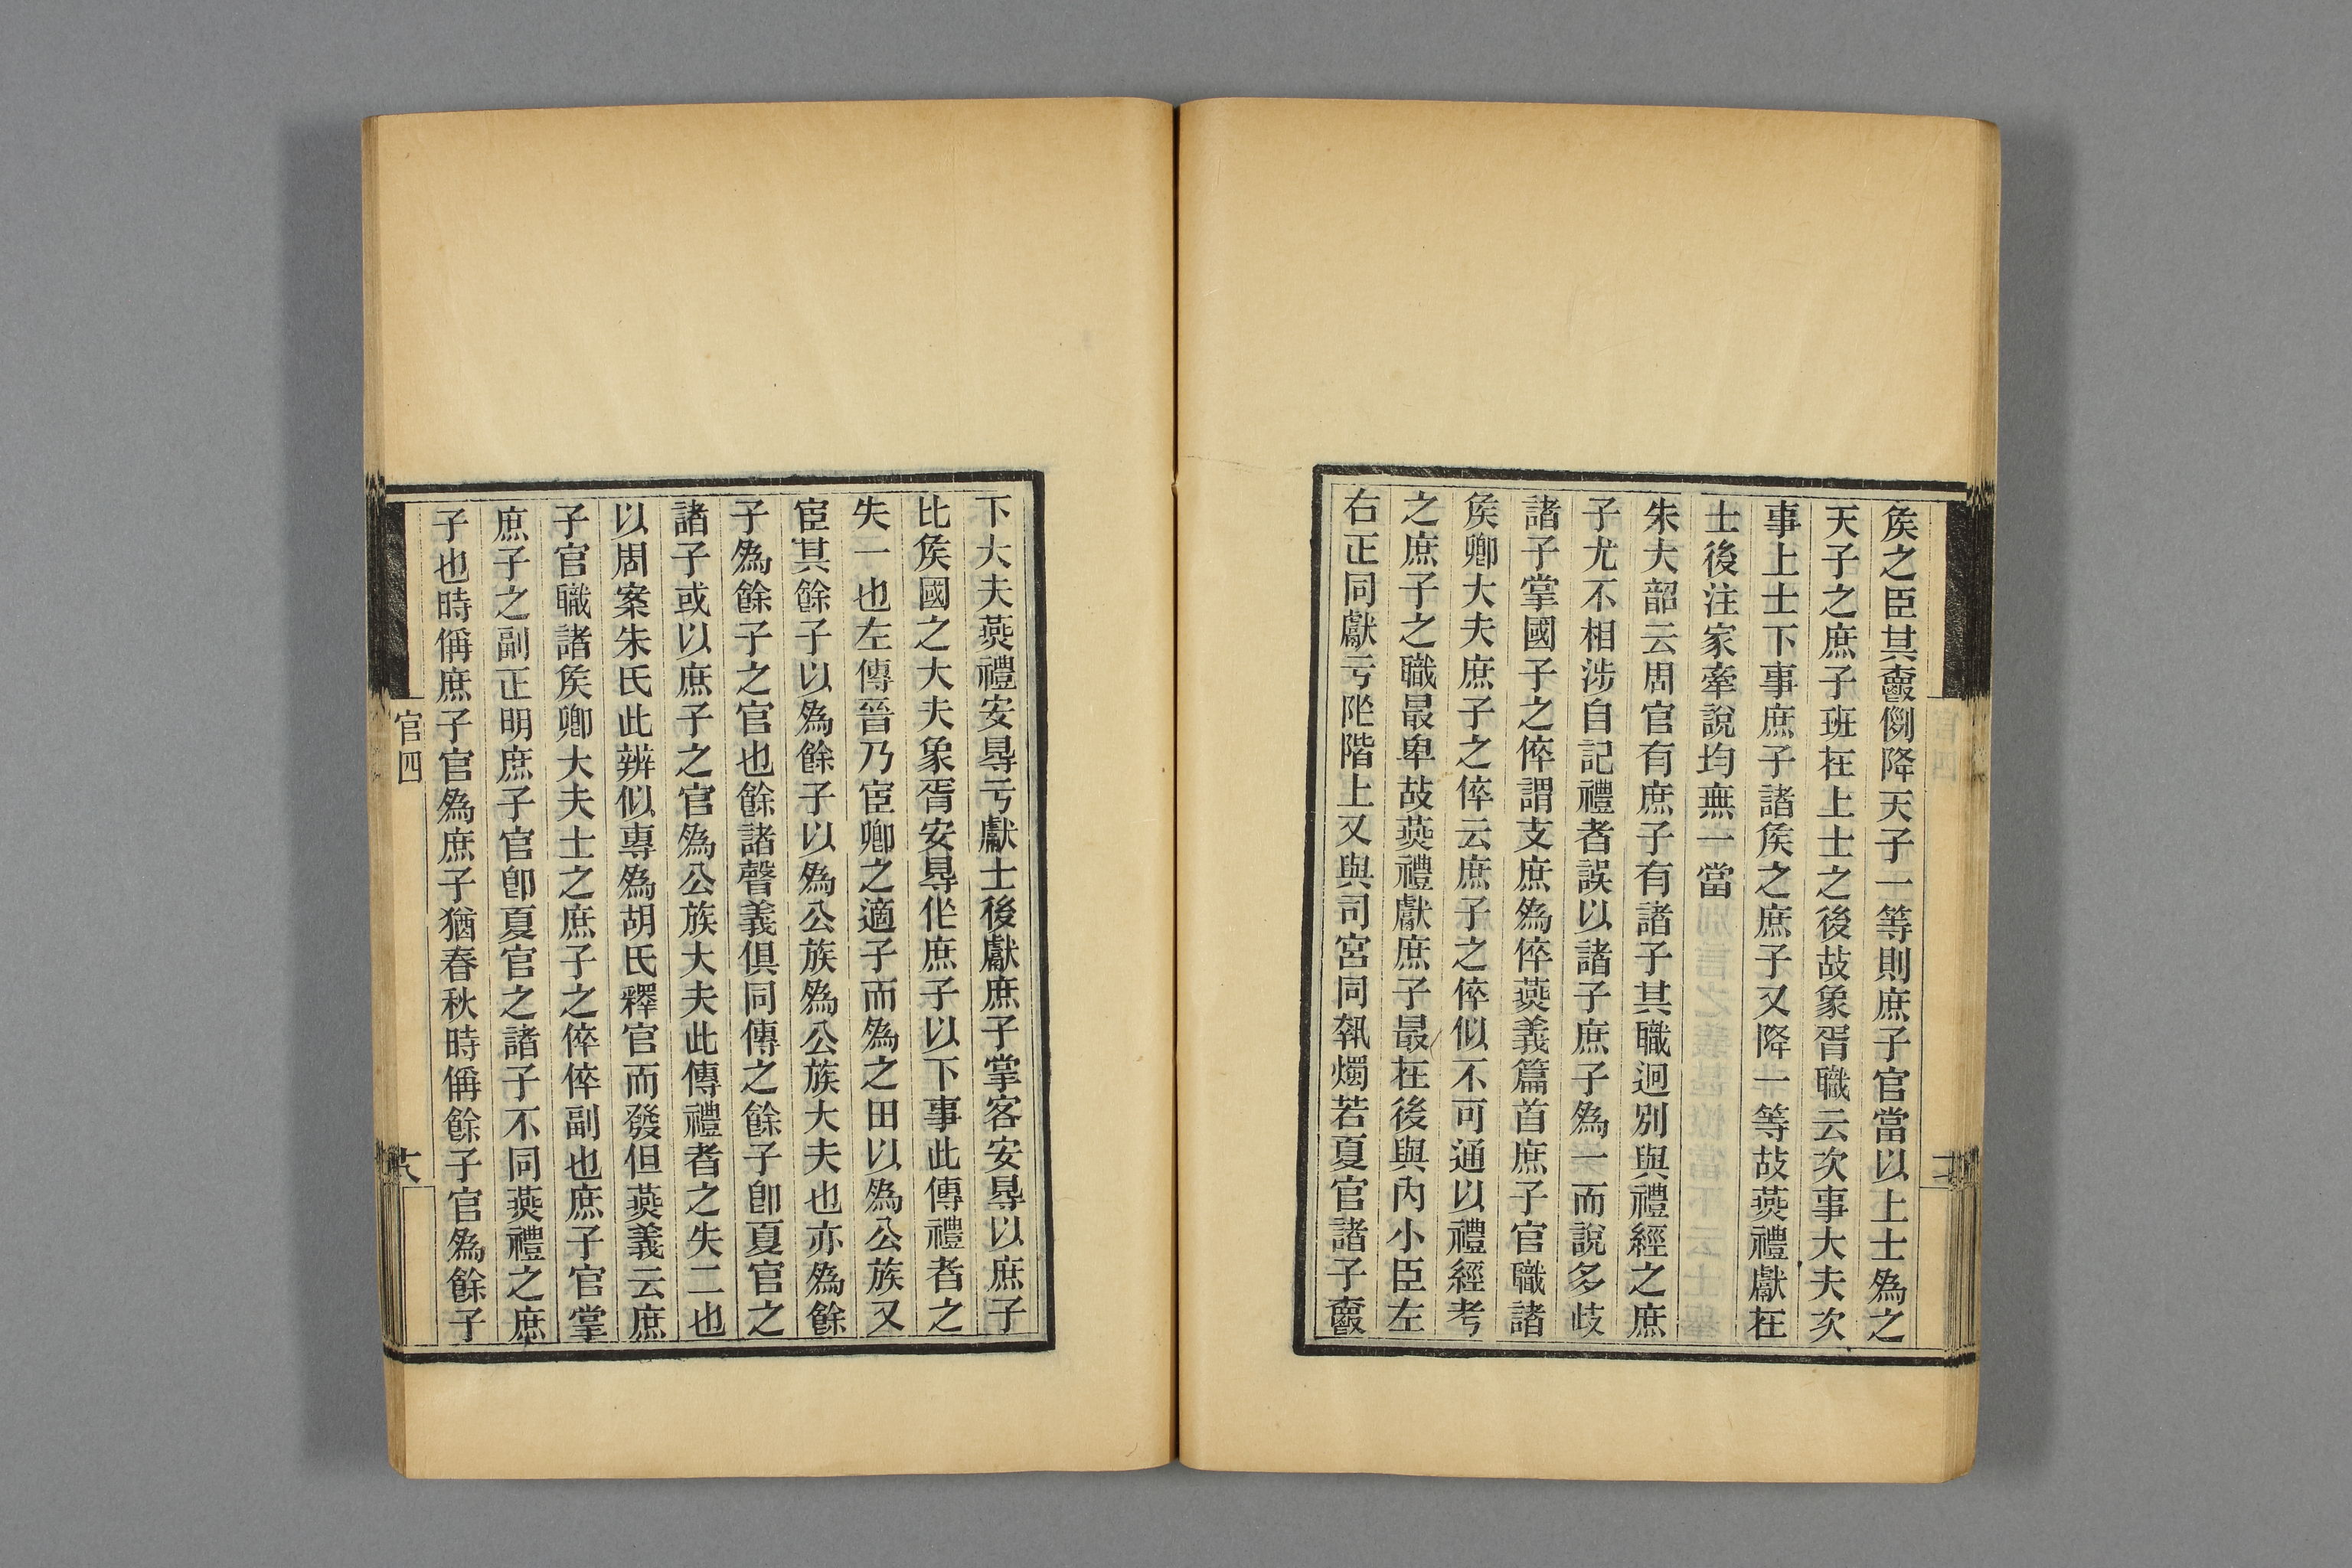 矦之臣其爵例降天子一等則庶子官當以上士爲之
天子之庶子班在上士之後故象胥職云次事大夫次
事上士下事庶子諸矦之庶子又降一等故燕禮獻在
士後注家牽說均無一當
朱大韶云周官有庶子有諸子其職迥別與禮經之庶
子尤不相涉自記禮者誤以諸子庶子爲一而說多歧
諸子掌國子之倅謂支庶爲倅燕義篇首庶子官職諸
矦卿大夫庶子之倅云庶子之倅似不可通以禮經考
之庶子之職最卑故燕禮獻庶子最在後與內小臣左
右正同獻亏阼階上又與司宮同執燭若夏官諸子爵
下大夫燕禮安㝵亏獻士後獻庶子掌客安㝵以庶子
比矦國之大夫象胥安㝵作庶子以下事此傳禮者之
失一也左傳晉乃宦卿之適子而爲之田以爲公族又
宦其餘子以爲餘子以爲公族爲公族大夫也亦爲餘
子爲餘子之官也餘諸聲義俱同傳之餘子卽夏官之
諸子或以庶子之官爲公族大夫此傳禮者之失二也
以周案朱氏此辨似專爲胡氏釋官而發但燕義云庶
子官職諸矦卿大夫士之庶子之倅倅副也庶子官掌
庶子之副正明庶子官卽夏官之諸子不同燕禮之庶
子也時偁庶子官爲庶子猶春秋時偁餘子官爲餘子
官四